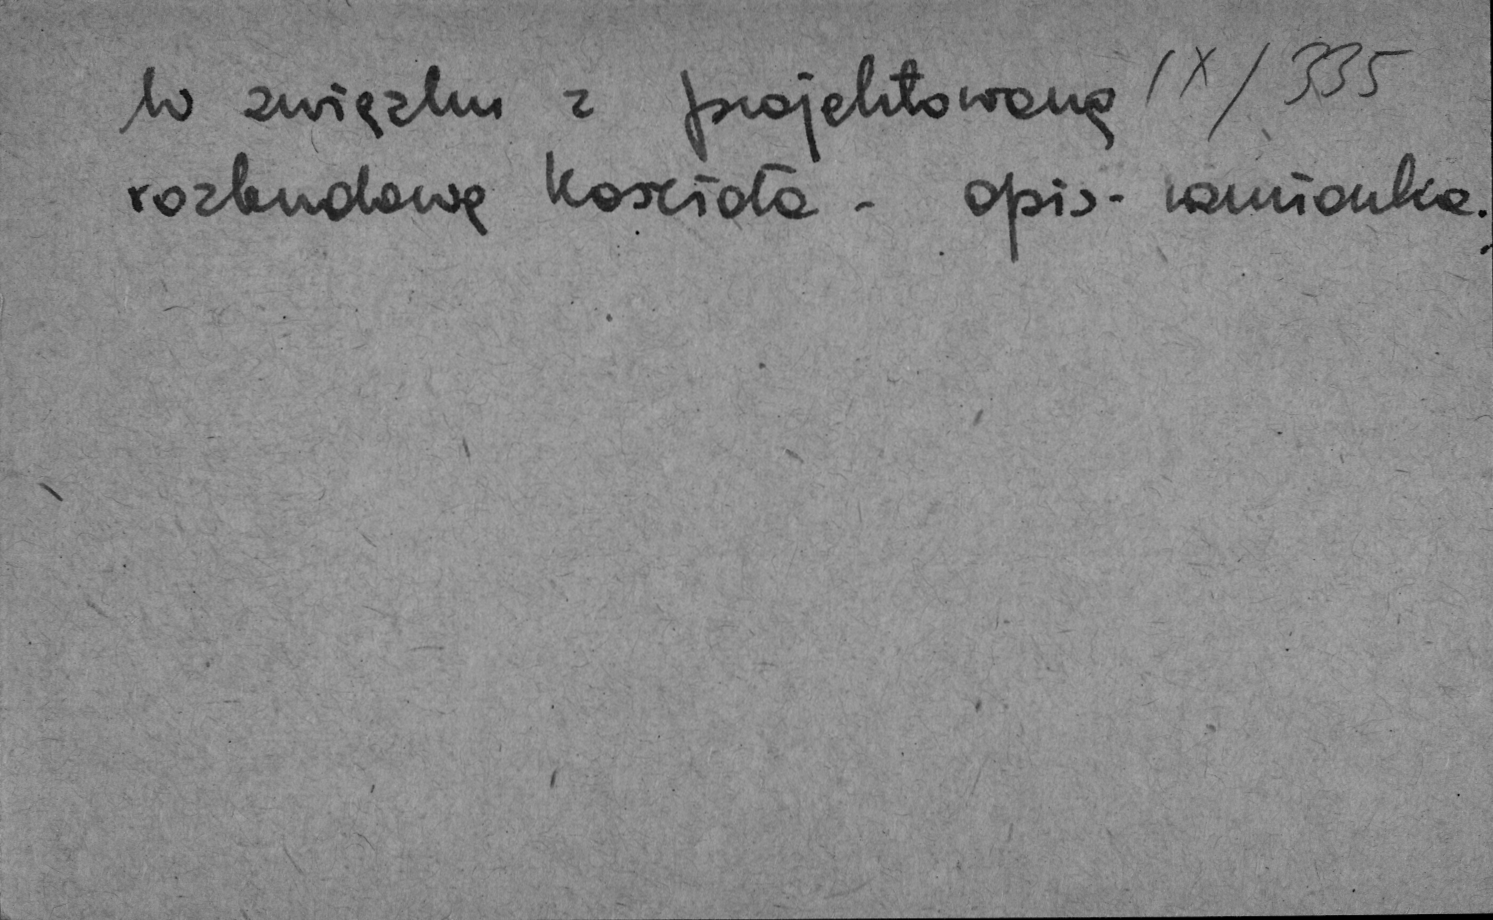 W związku z projektowaną IX/335
rozbudową kościoła - opis - wzmianka.